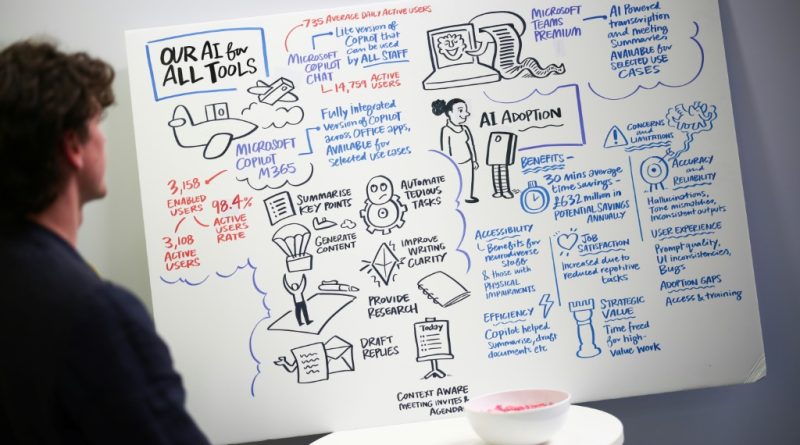 OUR AI for
ALL TOOLS
735 AVERAGE DAILY ACTIVE USERS
MICROSOFT
COPILOT
CHAT
Lite version of
COPILOT that
can be used
by ALL STAFF
14,759 ACTIVE
USERS
MICROSOFT
TEAMS
PREMIUM
AI Powered
transcription
and meeting
summaries
AVAILABLE for
SELECTED USE
CASES
MICROSOFT
COPILOT
M365
Fully integrated
version of COPILOT
across OFFICE apps,
AVAILABLE for
selected use cases
3,158
ENABLED
USERS
98.4%
ACTIVE
USERS
RATE
3,108
ACTIVE
USERS
SUMMARISE
KEY POINTS
AUTOMATE
TEDIOUS
TASKS
GENERATE
CONTENT
IMPROVE
WRITING
CLARITY
PROVIDE
RESEARCH
DRAFT
REPLIES
Today
CONTEXT AWARE
MEETING INVITES &
AGENDA
AI ADOPTION
BENEFITS
30 mins average
time savings -
£632 million in
POTENTIAL SAVINGS
ANNUALLY
ACCESSIBILITY
Benefits for
neurodiverse
staff
& those with
PHYSICAL
IMPAIRMENTS
JOB
SATISFACTION
Increased due to
reduced repetitive
tasks
EFFICIENCY
Copilot helped
summarise, draft
documents etc
STRATEGIC
VALUE
Time freed
for high-
value work
CONCERNS
and
LIMITATIONS
ACCURACY
and
RELIABILITY
Hallucinations,
Tone mismatches,
Inconsistent outputs
USER EXPERIENCE
Prompt quality,
UI inconsistencies,
Bugs
ADOPTION GAPS
Access & training